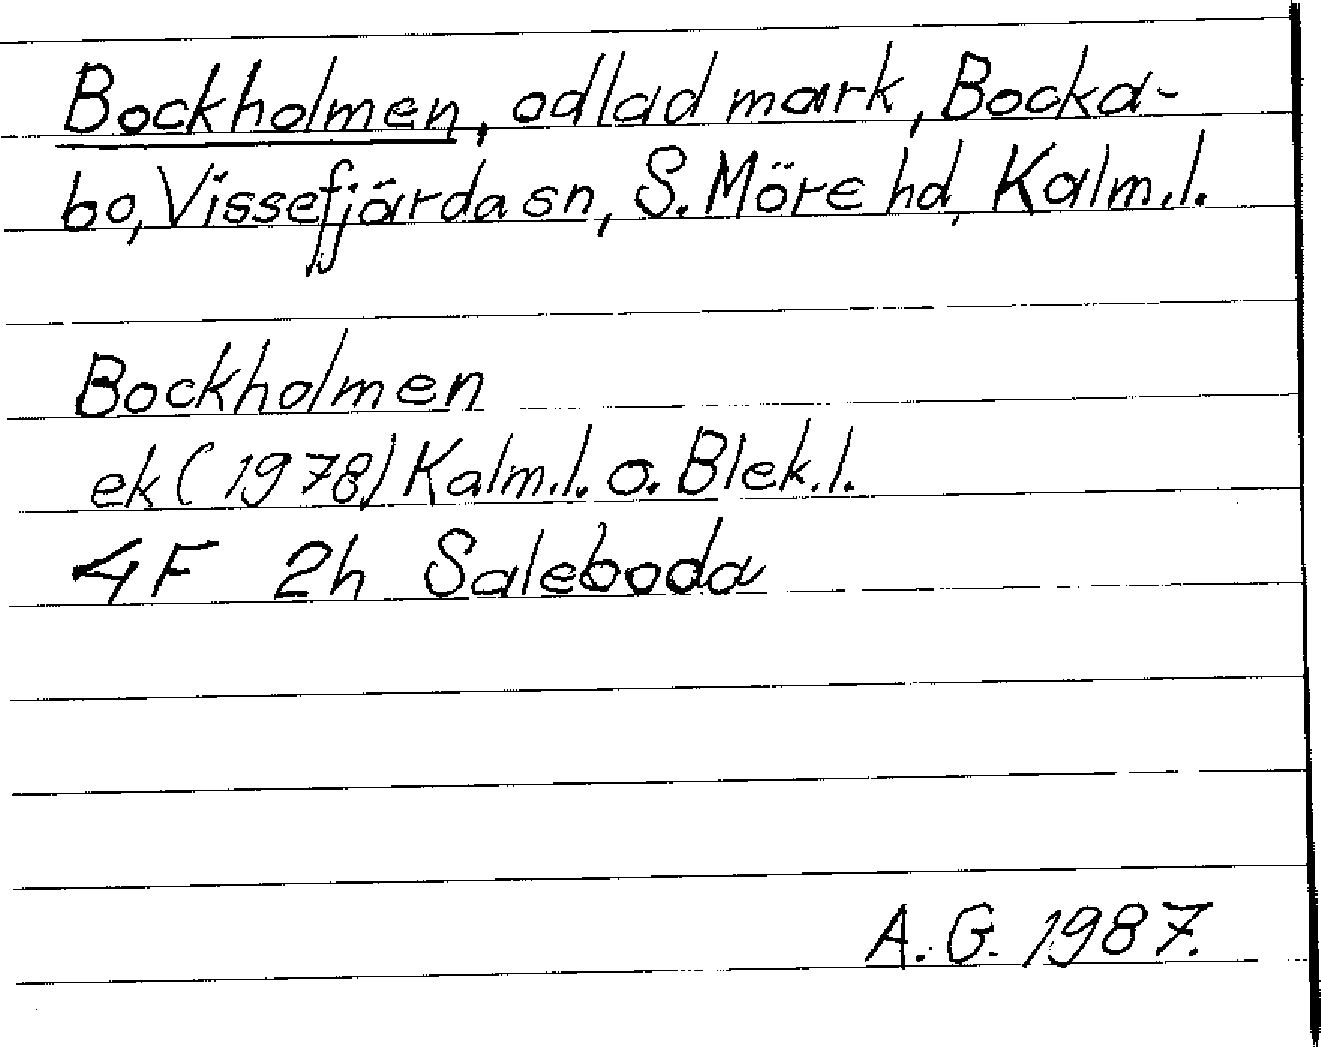 Bockholmen, odlad mark, Bocka-
bo, Vissefjärda sn, S. Möre hd, Kalm.l.
Bockholmen
ek (1978) Kalm.l. o. Blek.l.
4F 2h Saleboda
A.G. 1987.